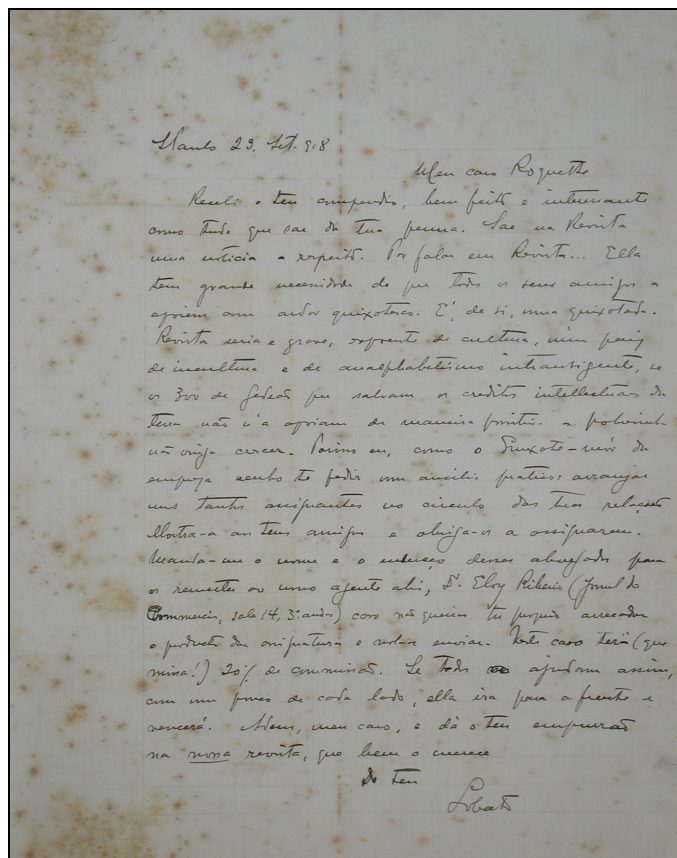 S. Paulo 23. Set. 918
Meu caro Roquette
Recebi o teu compendio, bem feito e interessante
como tudo que sae da tua penna. Sae na Revista
uma noticia a respeito. Por falar em Revista... Ella
tem grande necessidade de que todos os seus amigos a
apoiem com ardor quixotesco. E', de si, uma quixotada.
Revista seria e grave, expoente de cultura, num paiz
de incultura e de analphabetismo intransigente, se
os 300 de Gedeão que salvam os creditos intellectuaes da
terra não n'a apoiam de maneira positiva a pobresinha
não vinga crescer. Porisso eu, como o Quixote-mór da
empreza venho te pedir um auxilio pratico: arranjar
uns tantos assignantes no circulo das tuas relações
Mostra-a aos teus amigos e obriga-os a assignarem.
Manda-me o nome e o endereço desses abnegados para
os remetter ao nosso agente ahi, Dr. Eloy Ribeiro (Jornal do
Commercio, sala 14, 3º andar) caso não queiras tu proprio arrecadar
o producto das assignaturas e nolas enviar. Neste caso terás (que
mina!) 20% de commissão. Se todos ajudam assim,
com um pouco de cada lado, ella ira para a frente e
vencerá. Adeus, meu caro, e dá o teu empurrão
na nossa revista, que bem o merece
Do teu
Lobato